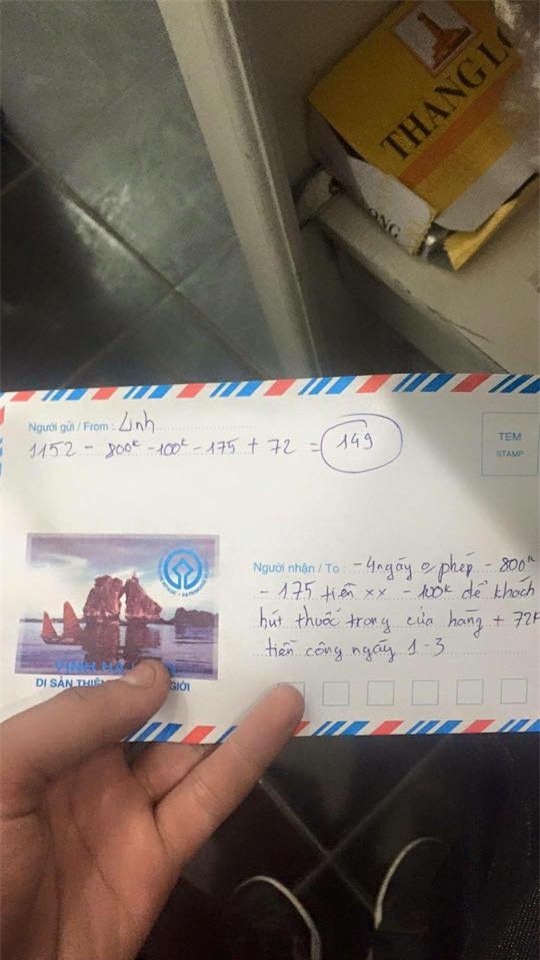 THANG LO
ONG
Người gửi / From : Linh
1152 - 800k - 100k - 175 + 72 = 149
TEM
STAMP
Người nhận / To : - 4 ngày o phép - 800k
- 175 tiền xx - 100k để khách
hút thuốc trong cửa hàng + 72k
tiền công ngày 1-3
DI SẢN THIÊN GIỚI